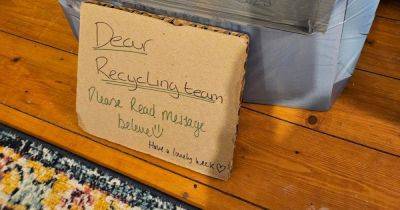 Decur
Recycling team
Please Read Message
below!
Have a lovely week